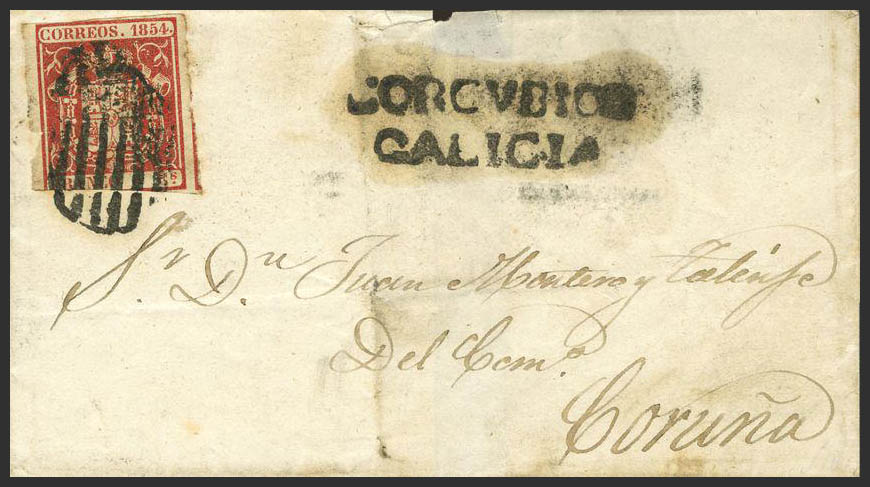 CORREOS. 1854.
CORCVBION
GALICIA
Sr. Dn. Juan Montero y Telinge
Del Comº.
Coruña